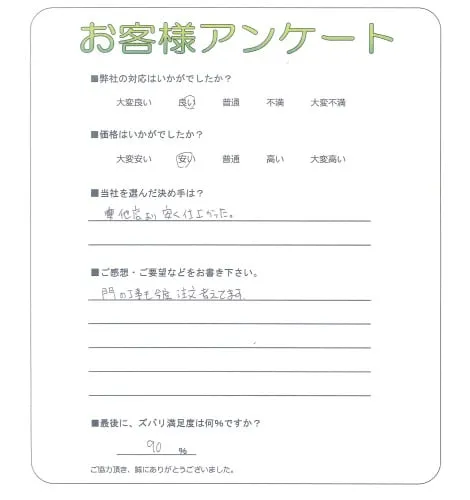 お客様アンケート
■弊社の対応はいかがでしたか？
大変良い 良い 普通 不満 大変不満
■価格はいかがでしたか？
大変安い 安い 普通 高い 大変高い
■当社を選んだ決め手は？
他店より安く仕上がった。
■ご感想・ご要望などをお書き下さい。
門の工事も今度注文考えてます。
■最後に、ズバリ満足度は何％ですか？
90 ％
ご協力頂き、誠にありがとうございました。